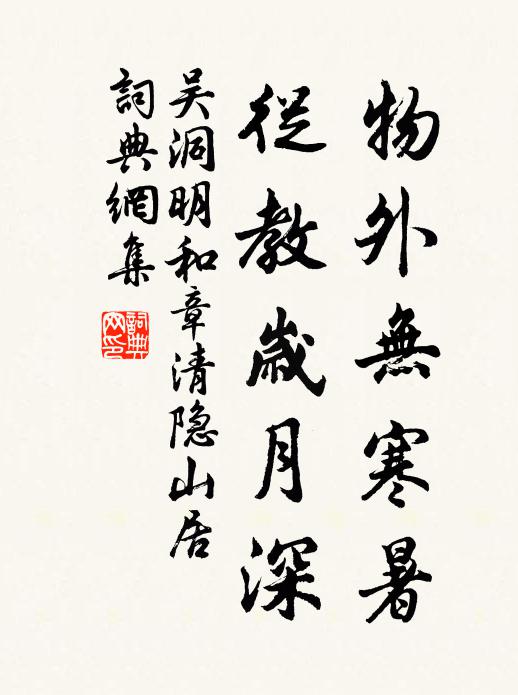 物外無寒暑
從教歲月深
吴洞明和章清隐山居
詞典網集
詞典网印